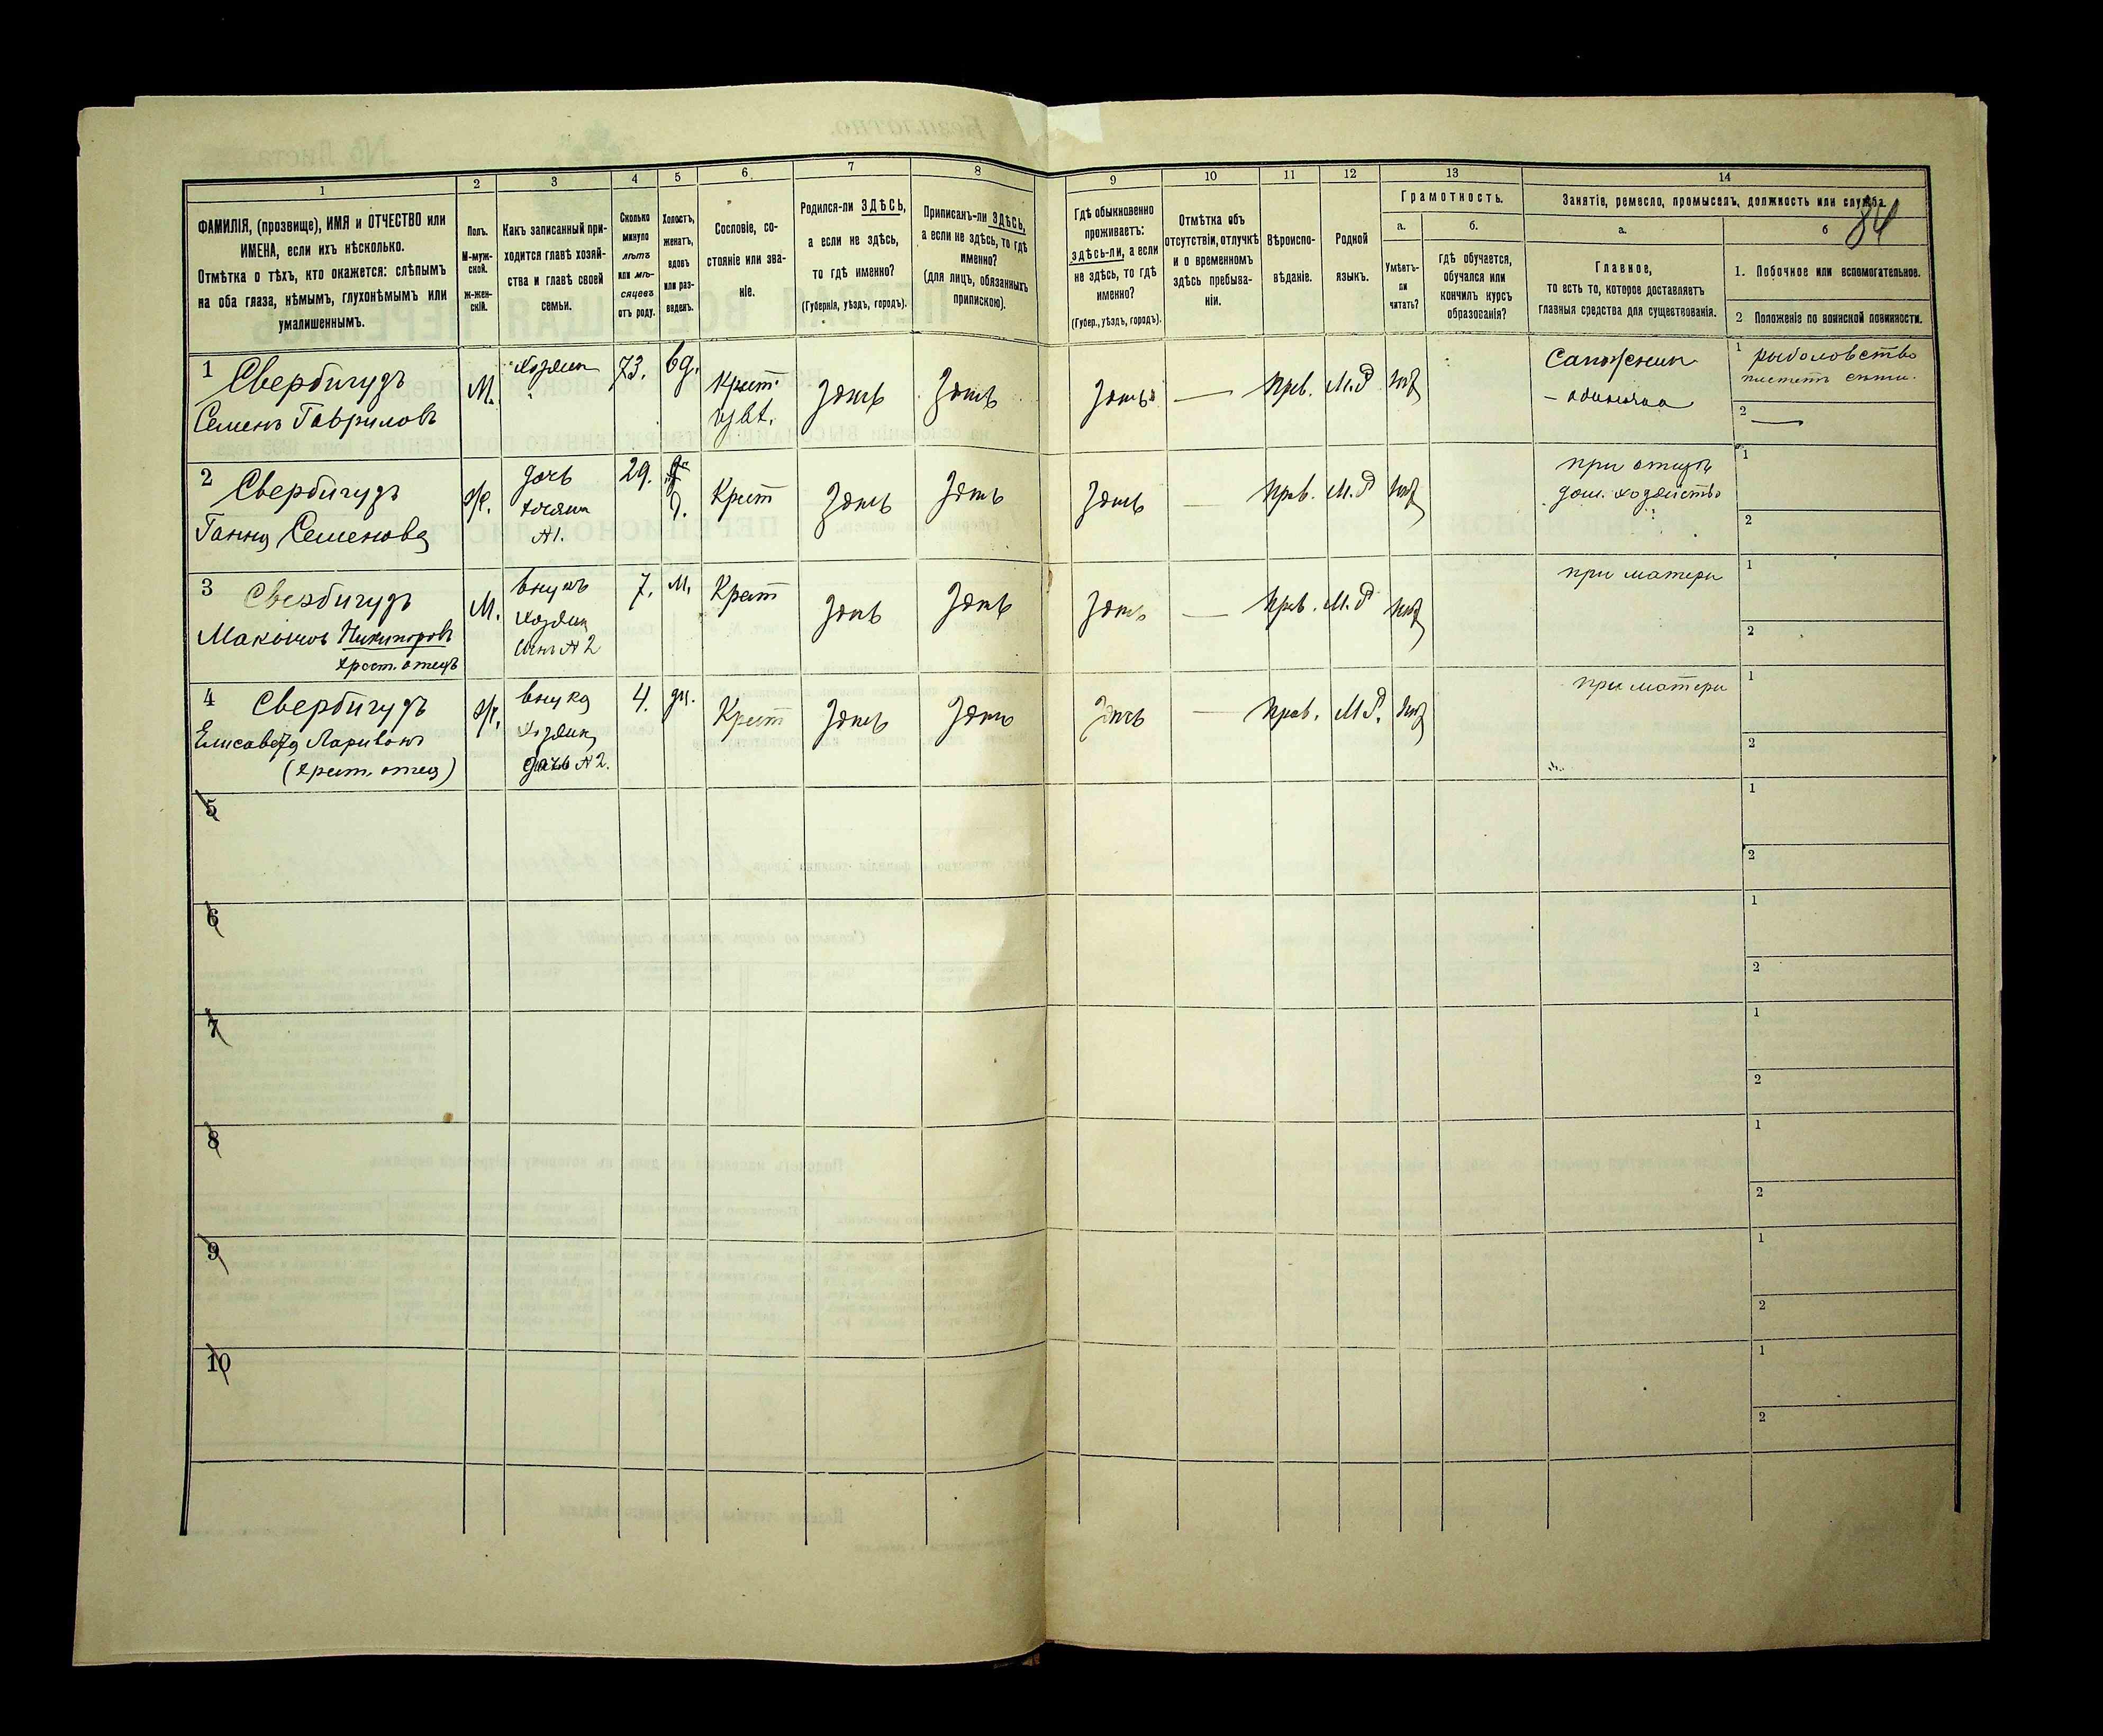 84
1 2 3 4 5 6 7 8 9 10 11 12 13 14
ФАМИЛІЯ, (прозвище), ИМЯ и ОТЧЕСТВО или
ИМЕНА, если ихъ нѣсколько.
Отмѣтка о тѣхъ, кто окажется: слѣпымъ
на оба глаза, нѣмымъ, глухонѣмымъ или
умалишеннымъ.
Полъ.
М-муж-
ской.
Ж-жен-
скій.
Какъ записанный при-
ходится главѣ хозяй-
ства и главѣ своей
семьи.
Сколько
минуло
лѣтъ
или мѣ-
сяцевъ
отъ роду.
Холостъ,
женатъ,
вдовъ
или раз-
веденъ.
Сословіе, со-
стояніе или зва-
ніе.
Родился-ли ЗДѢСЬ,
а если не здѣсь,
то гдѣ именно?
(Губернія, уѣздъ, городъ).
Приписанъ-ли ЗДѢСЬ,
а если не здѣсь, то гдѣ
именно?
(для лицъ, обязанныхъ
припискою).
Гдѣ обыкновенно
проживаетъ:
здѣсь-ли, а если
не здѣсь, то гдѣ
именно?
(Губер., уѣздъ, городъ).
Отмѣтка объ
отсутствіи, отлучкѣ
и о временномъ
здѣсь пребыва-
ніи.
Вѣроиспо-
вѣданіе.
Родной
языкъ.
Грамотность.
а.
Умѣетъ-
ли
читать?
б.
гдѣ обучается,
обучался или
кончилъ курсъ
образованія?
Занятіе, ремесло, промыселъ, должность или служба.
а.
Главное,
то есть то, которое доставляетъ
главныя средства для существованія.
б
1. Побочное или вспомогательное.
2 Положеніе по воинской повинности.
1 Свербигудъ
Семенъ Гавриловъ
М.
хозяин
73.
вд.
Крест.
здѣсь
здѣсь
здѣсь
—
Прав.
М.Р
Сапожник
- одиночка
1 рыболовство
плететъ сѣти.
2 —
2 Свербигудъ
Ганна Семенова
ж.
дочь
хозяин
№1.
29.
д.
Крест
здѣсь
здѣсь
здѣсь
—
Прав.
М.Р
при отцѣ
дом. хозяйство
1
2
3 Свербигудъ
Никифоровъ
крест. отецъ
М.
внукъ
хозяин
сынъ №2
7.
м.
Крест
здѣсь
здѣсь
здѣсь
—
Прав.
М.Р
при матери
1
2
4 Свербигудъ
Елисавета Ларивон
(крест. отец)
ж.
внука
хозяин
дочь №2.
4.
Крест
здѣсь
здѣсь
здѣсь
—
Прав.
М Р.
при матери
1
2
5
1
2
6
1
2
7
1
2
8
1
2
9
1
2
10
1
2